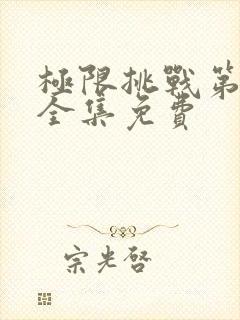 極限挑戰第
全集免費
宗光啓